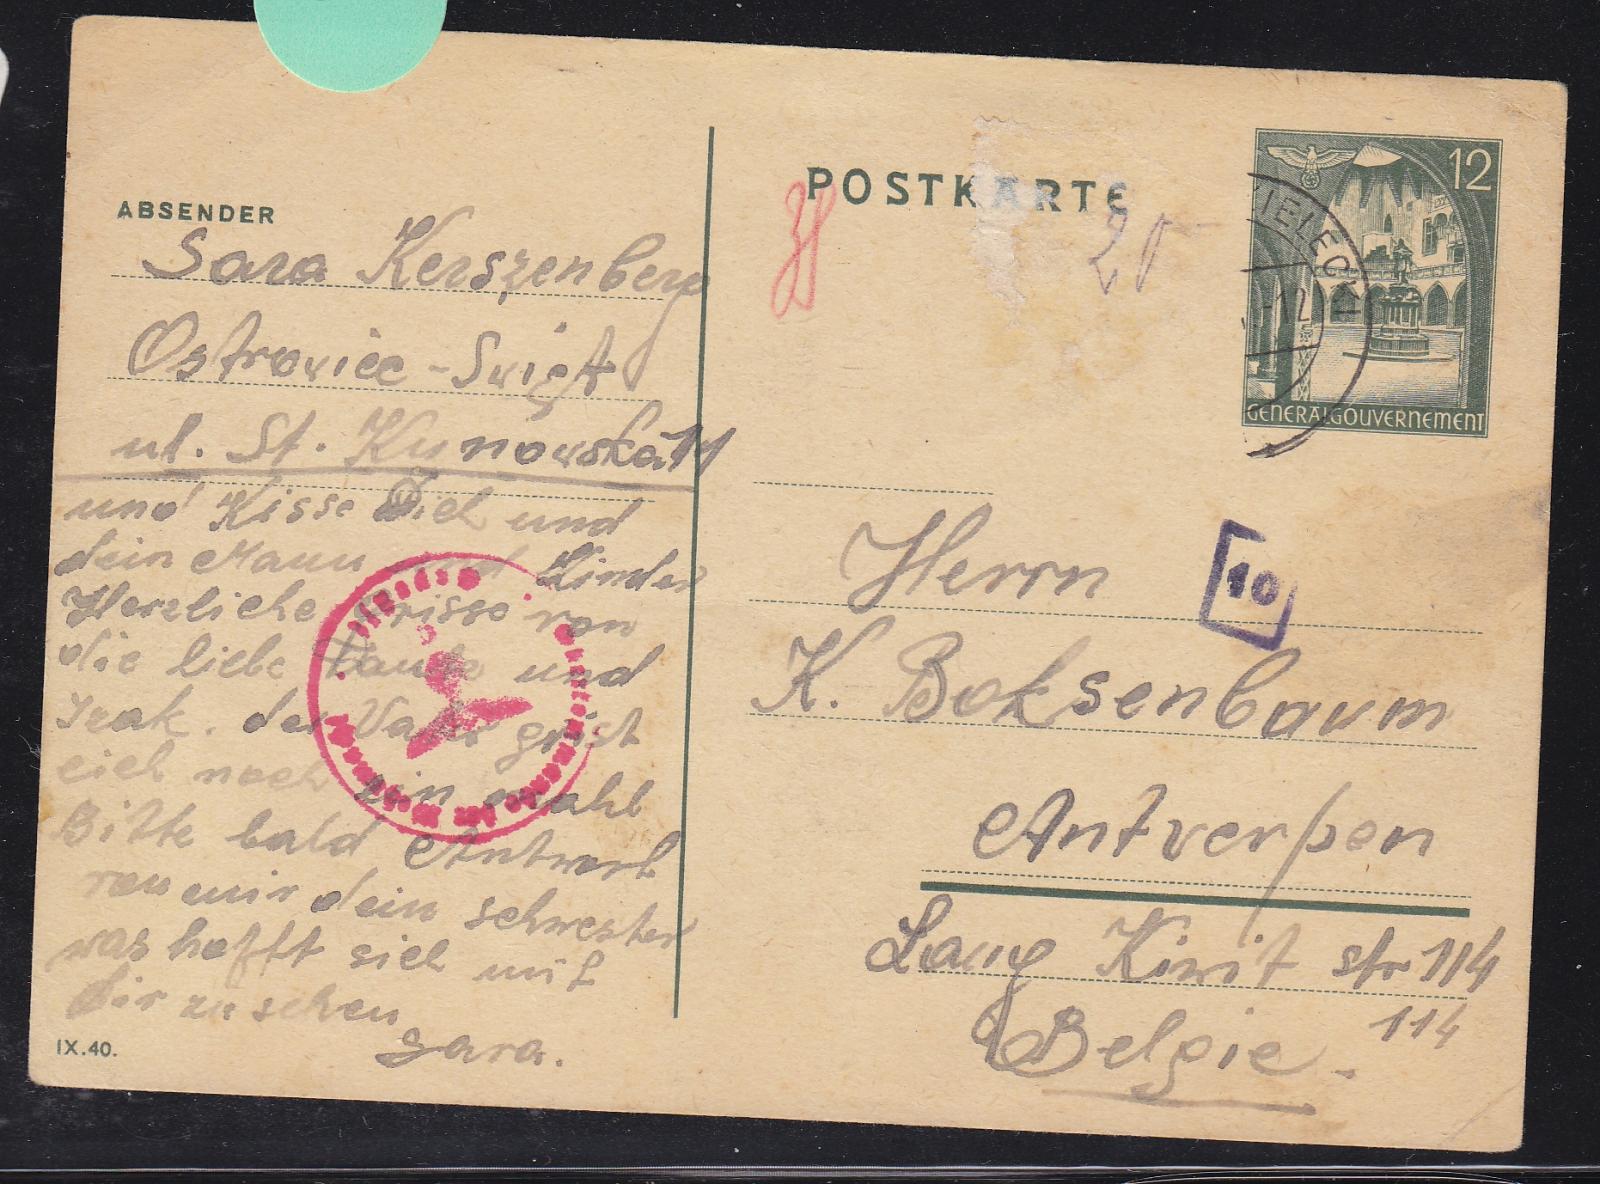 ABSENDER
Sara Kerszenberg
Ostroviec - Święt
ul. St. Kunowska 11
und Kisse Dich und
dein Mann und Kinder
Herzliche Grisse von
die liebe Taute und
Izak. der Vater grist
eich noch ein mahl
Bitte bald Antwort
von mir dein schwester
was hofft sich mit
dir zu sehen
Sara.
IX.40.
POSTKARTE
25
12
KIELECKI
GENERALGOUVERNEMENT
10
Herrn
K. Boksenbaum
Antverpen
Lang Kiwit str 114
114
Belgie.